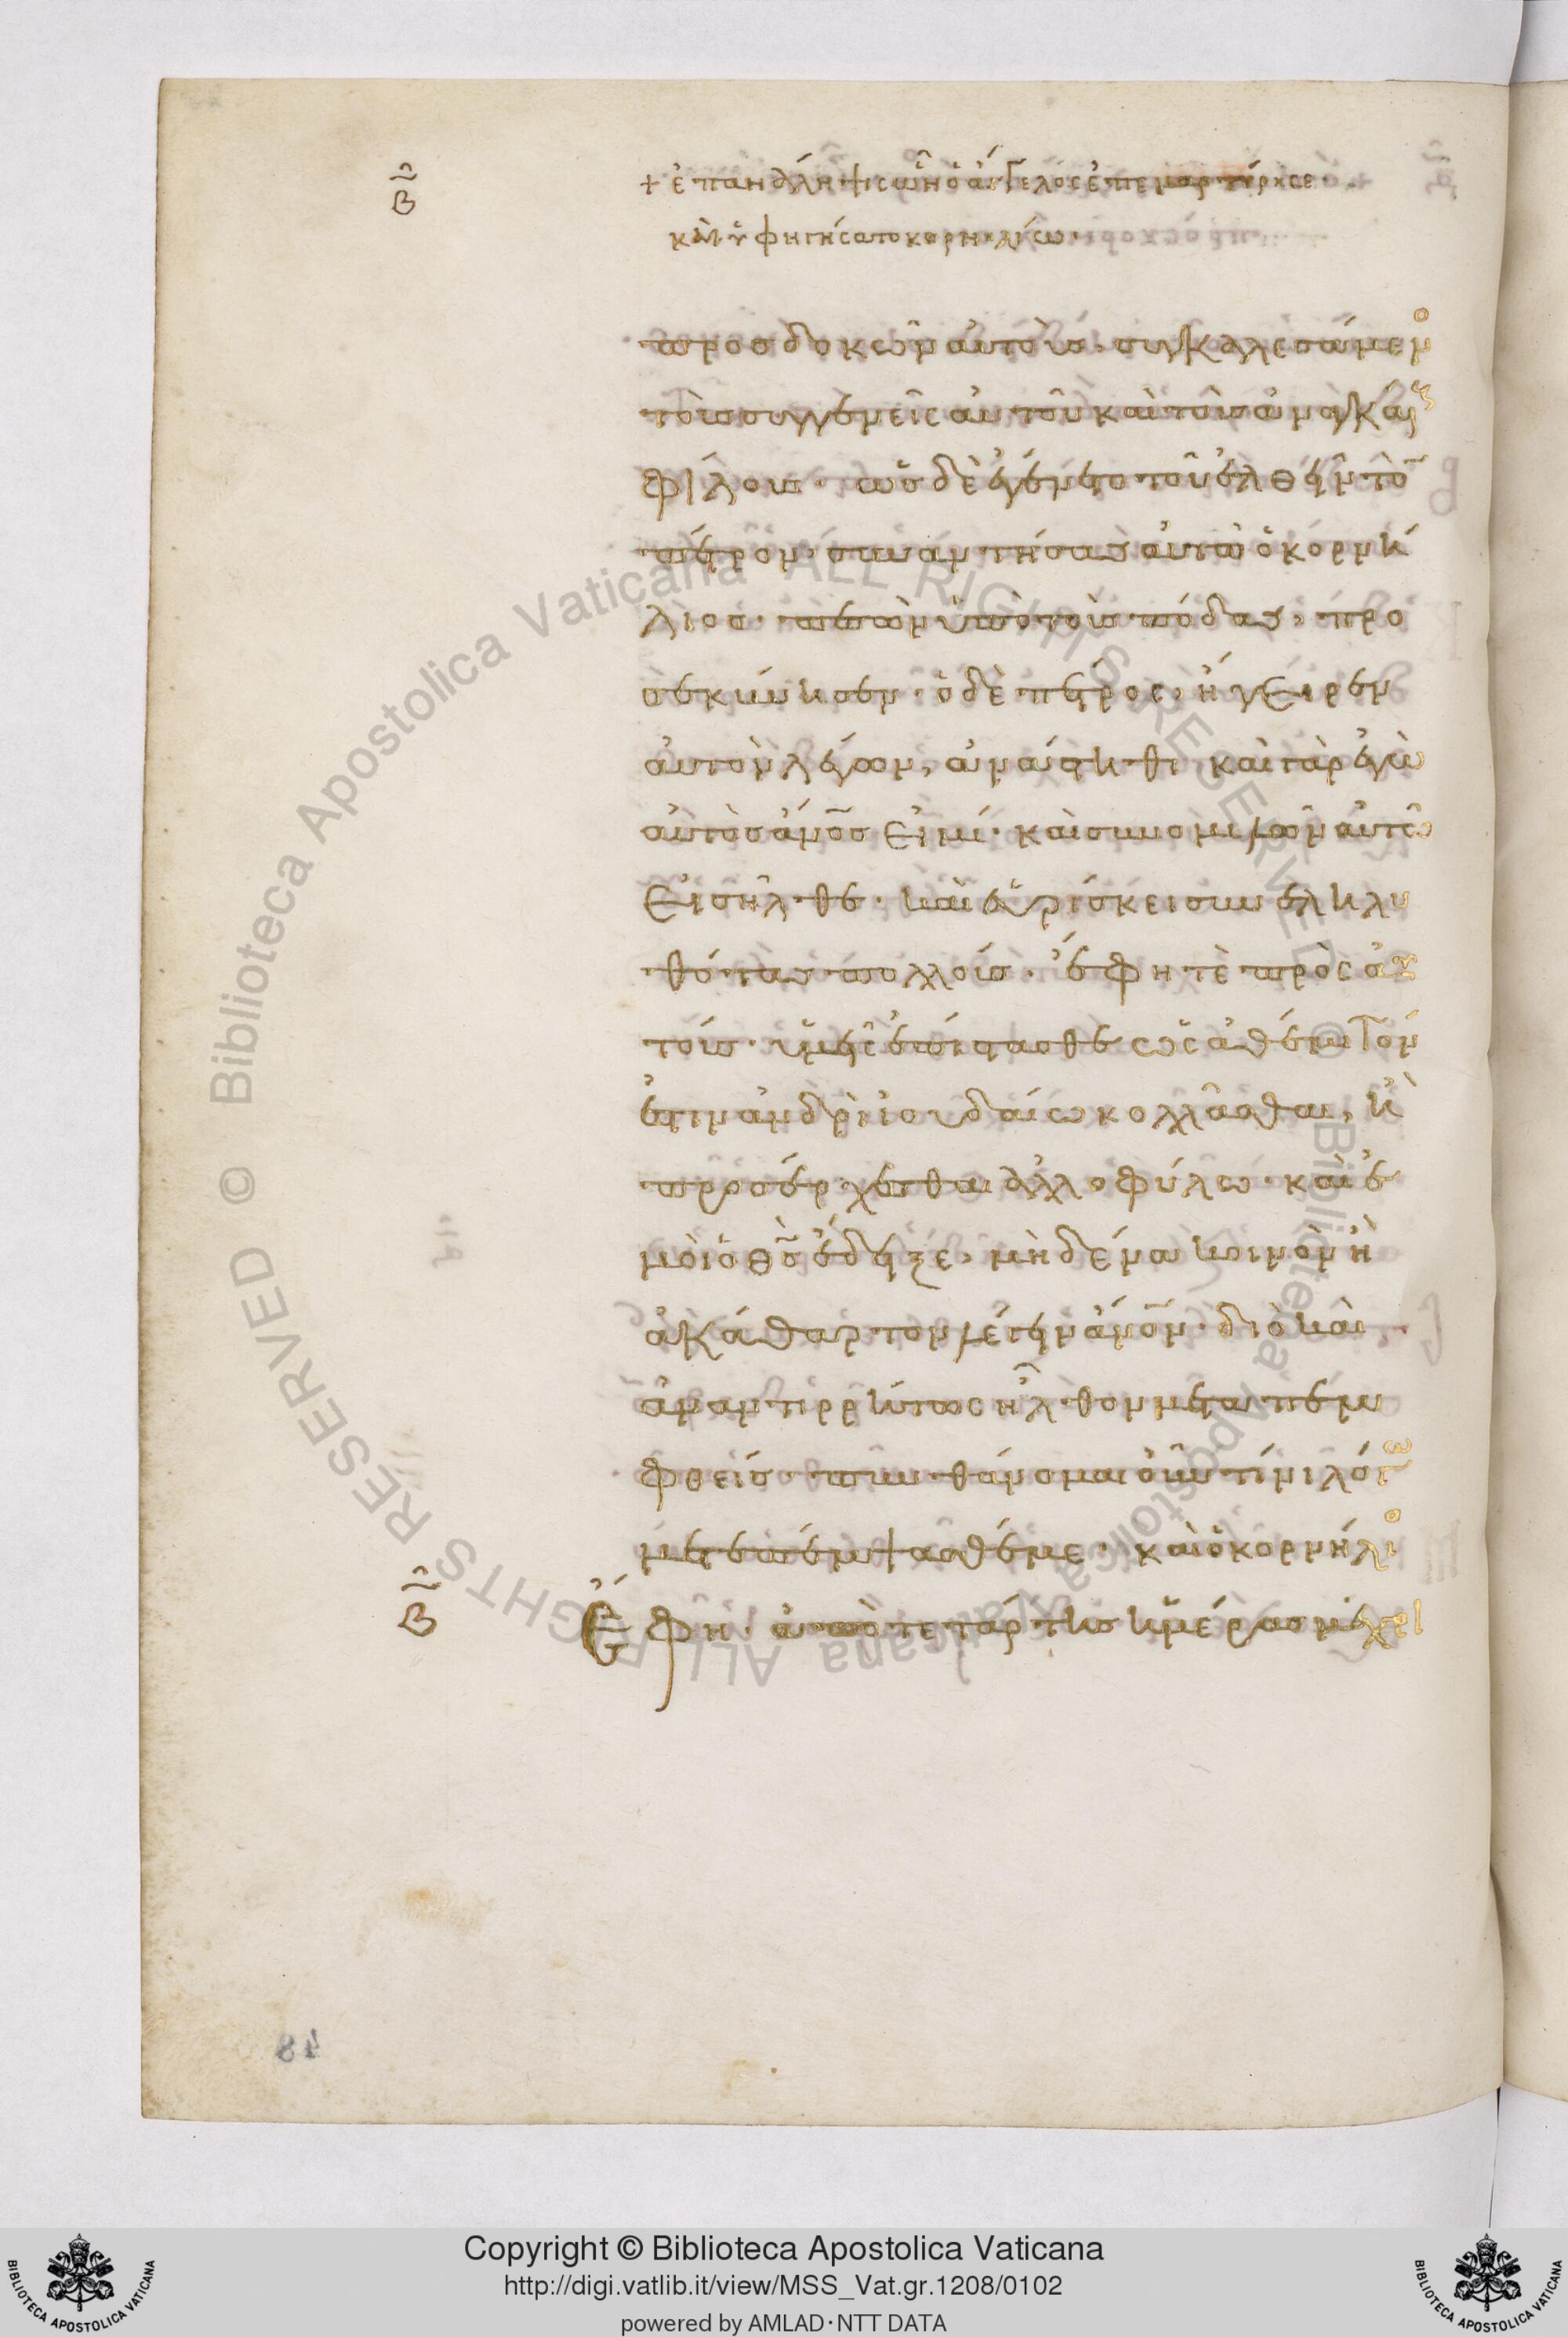 β
+ ἐπανάληψις ὧν ὁ ἄγγελος ἐπεμαρτύρησε
καὶ ὑφηγήσατο κορνηλίω·
προσδοκῶν αὐτοὺς· συγκαλεσάμενο
τοὺς συγγενεῖς αὐτοῦ καὶ τοὺς ἀναγκαί
φίλους· ὡς δὲ ἐγένετο τοῦ ἐλθεῖν τὸ
πέτρον· συναντήσας αὐτῶ ὁ κορνή
λιος· πεσὼν ὑπὸ τοὺς πόδας, προ
σεκύνησεν· ὁ δὲ πέτρος, ἤγειρεν
αὐτὸν λέγων, ἀνάστηθι καὶ γὰρ ἐγὼ
αὐτὸς ἄνος εἰμί· καὶ συνομιλῶν αὐτῶ
εἰσῆλθε· καὶ εὑρίσκει συνεληλυ
θότας πολλούς· ἔφη τὲ πρὸς αὐ
τούς· ὑμεῖς ἐπίστασθε ὡς ἀθέμιτόν
ἐστιν ἀνδρὶ ἰουδαίω κολλᾶσθαι, ἢ
προσέρχεσθαι ἀλλοφύλω· καὶ ἐ
μοὶ ὁ θς ἔδειξε, μηδένα κοινὸν ἢ
ἀκάθαρτον λέγειν ἄνον· διὸ καὶ
ἀναντιρρήτως ἦλθον μεταπεμ
φθείς· πυνθάνομαι οὖν τίνι λόγω
μετεπέμψασθέ με· καὶ ὁ κορνήλιο
β
Ἔφη· ἀπὸ τετάρτης ἡμέρας μέχρι
48
Biblioteca Apostolica Vaticana ALL RIGHTS RESERVED ©
Copyright © Biblioteca Apostolica Vaticana
http://digi.vatlib.it/view/MSS_Vat.gr.1208/0102
powered by AMLAD·NTT DATA
BIBLIOTECA APOSTOLICA VATICANA
BIBLIOTECA APOSTOLICA VATICANA